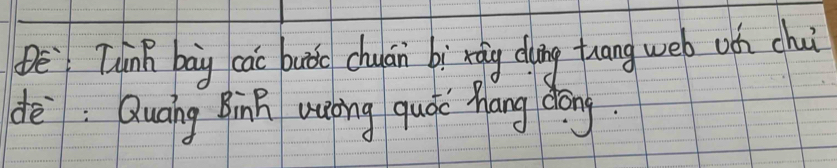 Đề: Trình bày các bước chuẩn bị xây dựng trang web với chủ
đề: Quảng Bình vương quốc hang động.